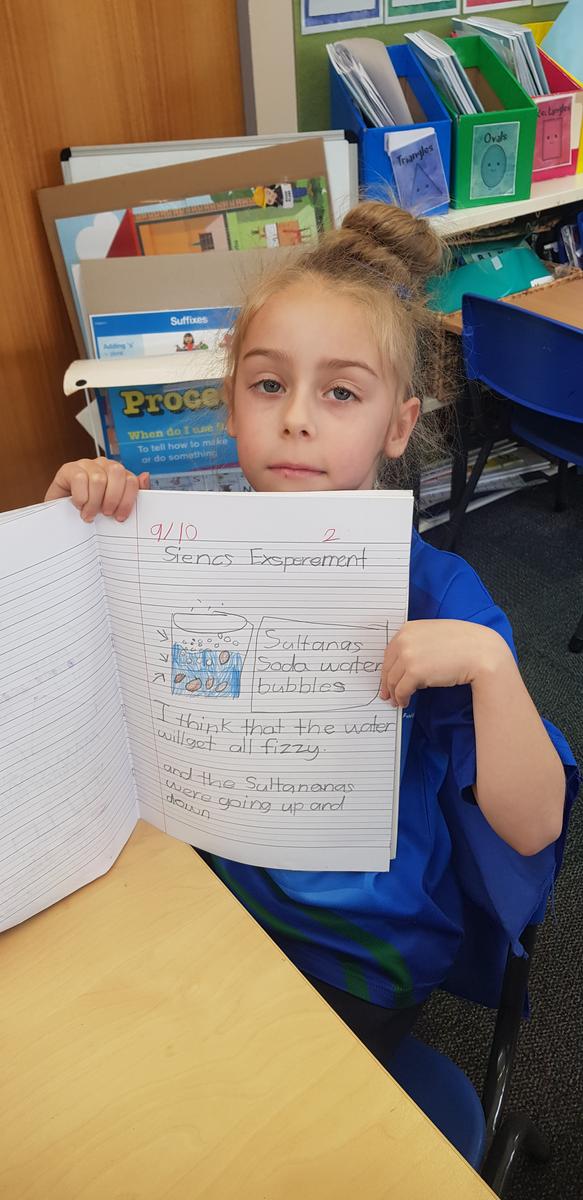 Triangles
Ovals
Rectangles
Suffixes
Adding 's'
Proce
When do I use
To tell how to make
or do something
9/10 2
Siencs Exsperement
Sultanas
Soda water
bubbles
I think that the water
will get all fizzy.
and the Sultanenas
were going up and
down